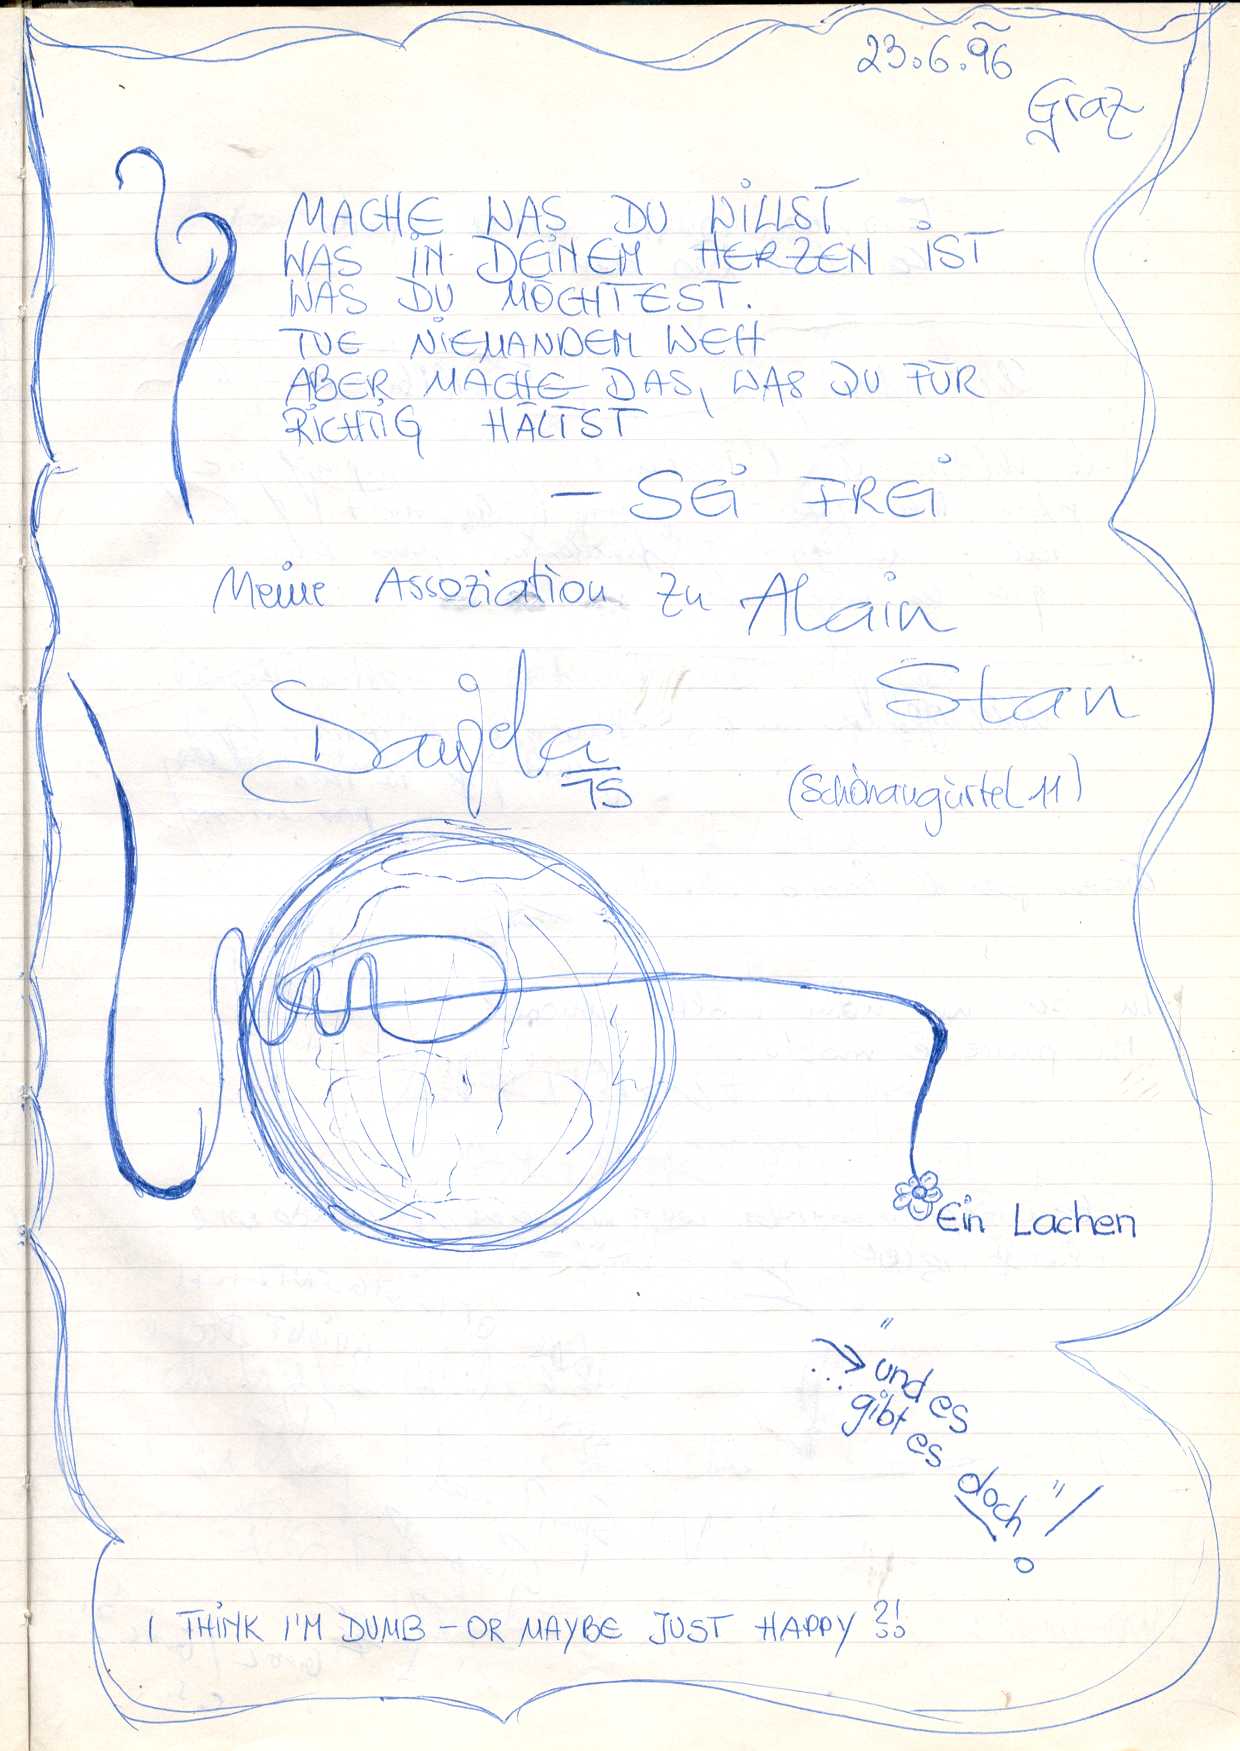 23.6.96
Graz
MACHE WAS DU WILLST
WAS IN DEINEM HERZEN IST
WAS DU MÖCHTEST.
TUE NIEMANDEM WEH
ABER MACHE DAS, WAS DU FÜR
RICHTIG HÄLTST
— SEI FREI
Meine Assoziation zu Alain
Stan
(Schönaugürtel 11)
15
Ein Lachen
"und es
... gibt es
doch"!
I THINK I'M DUMB – OR MAYBE JUST HAPPY ?!